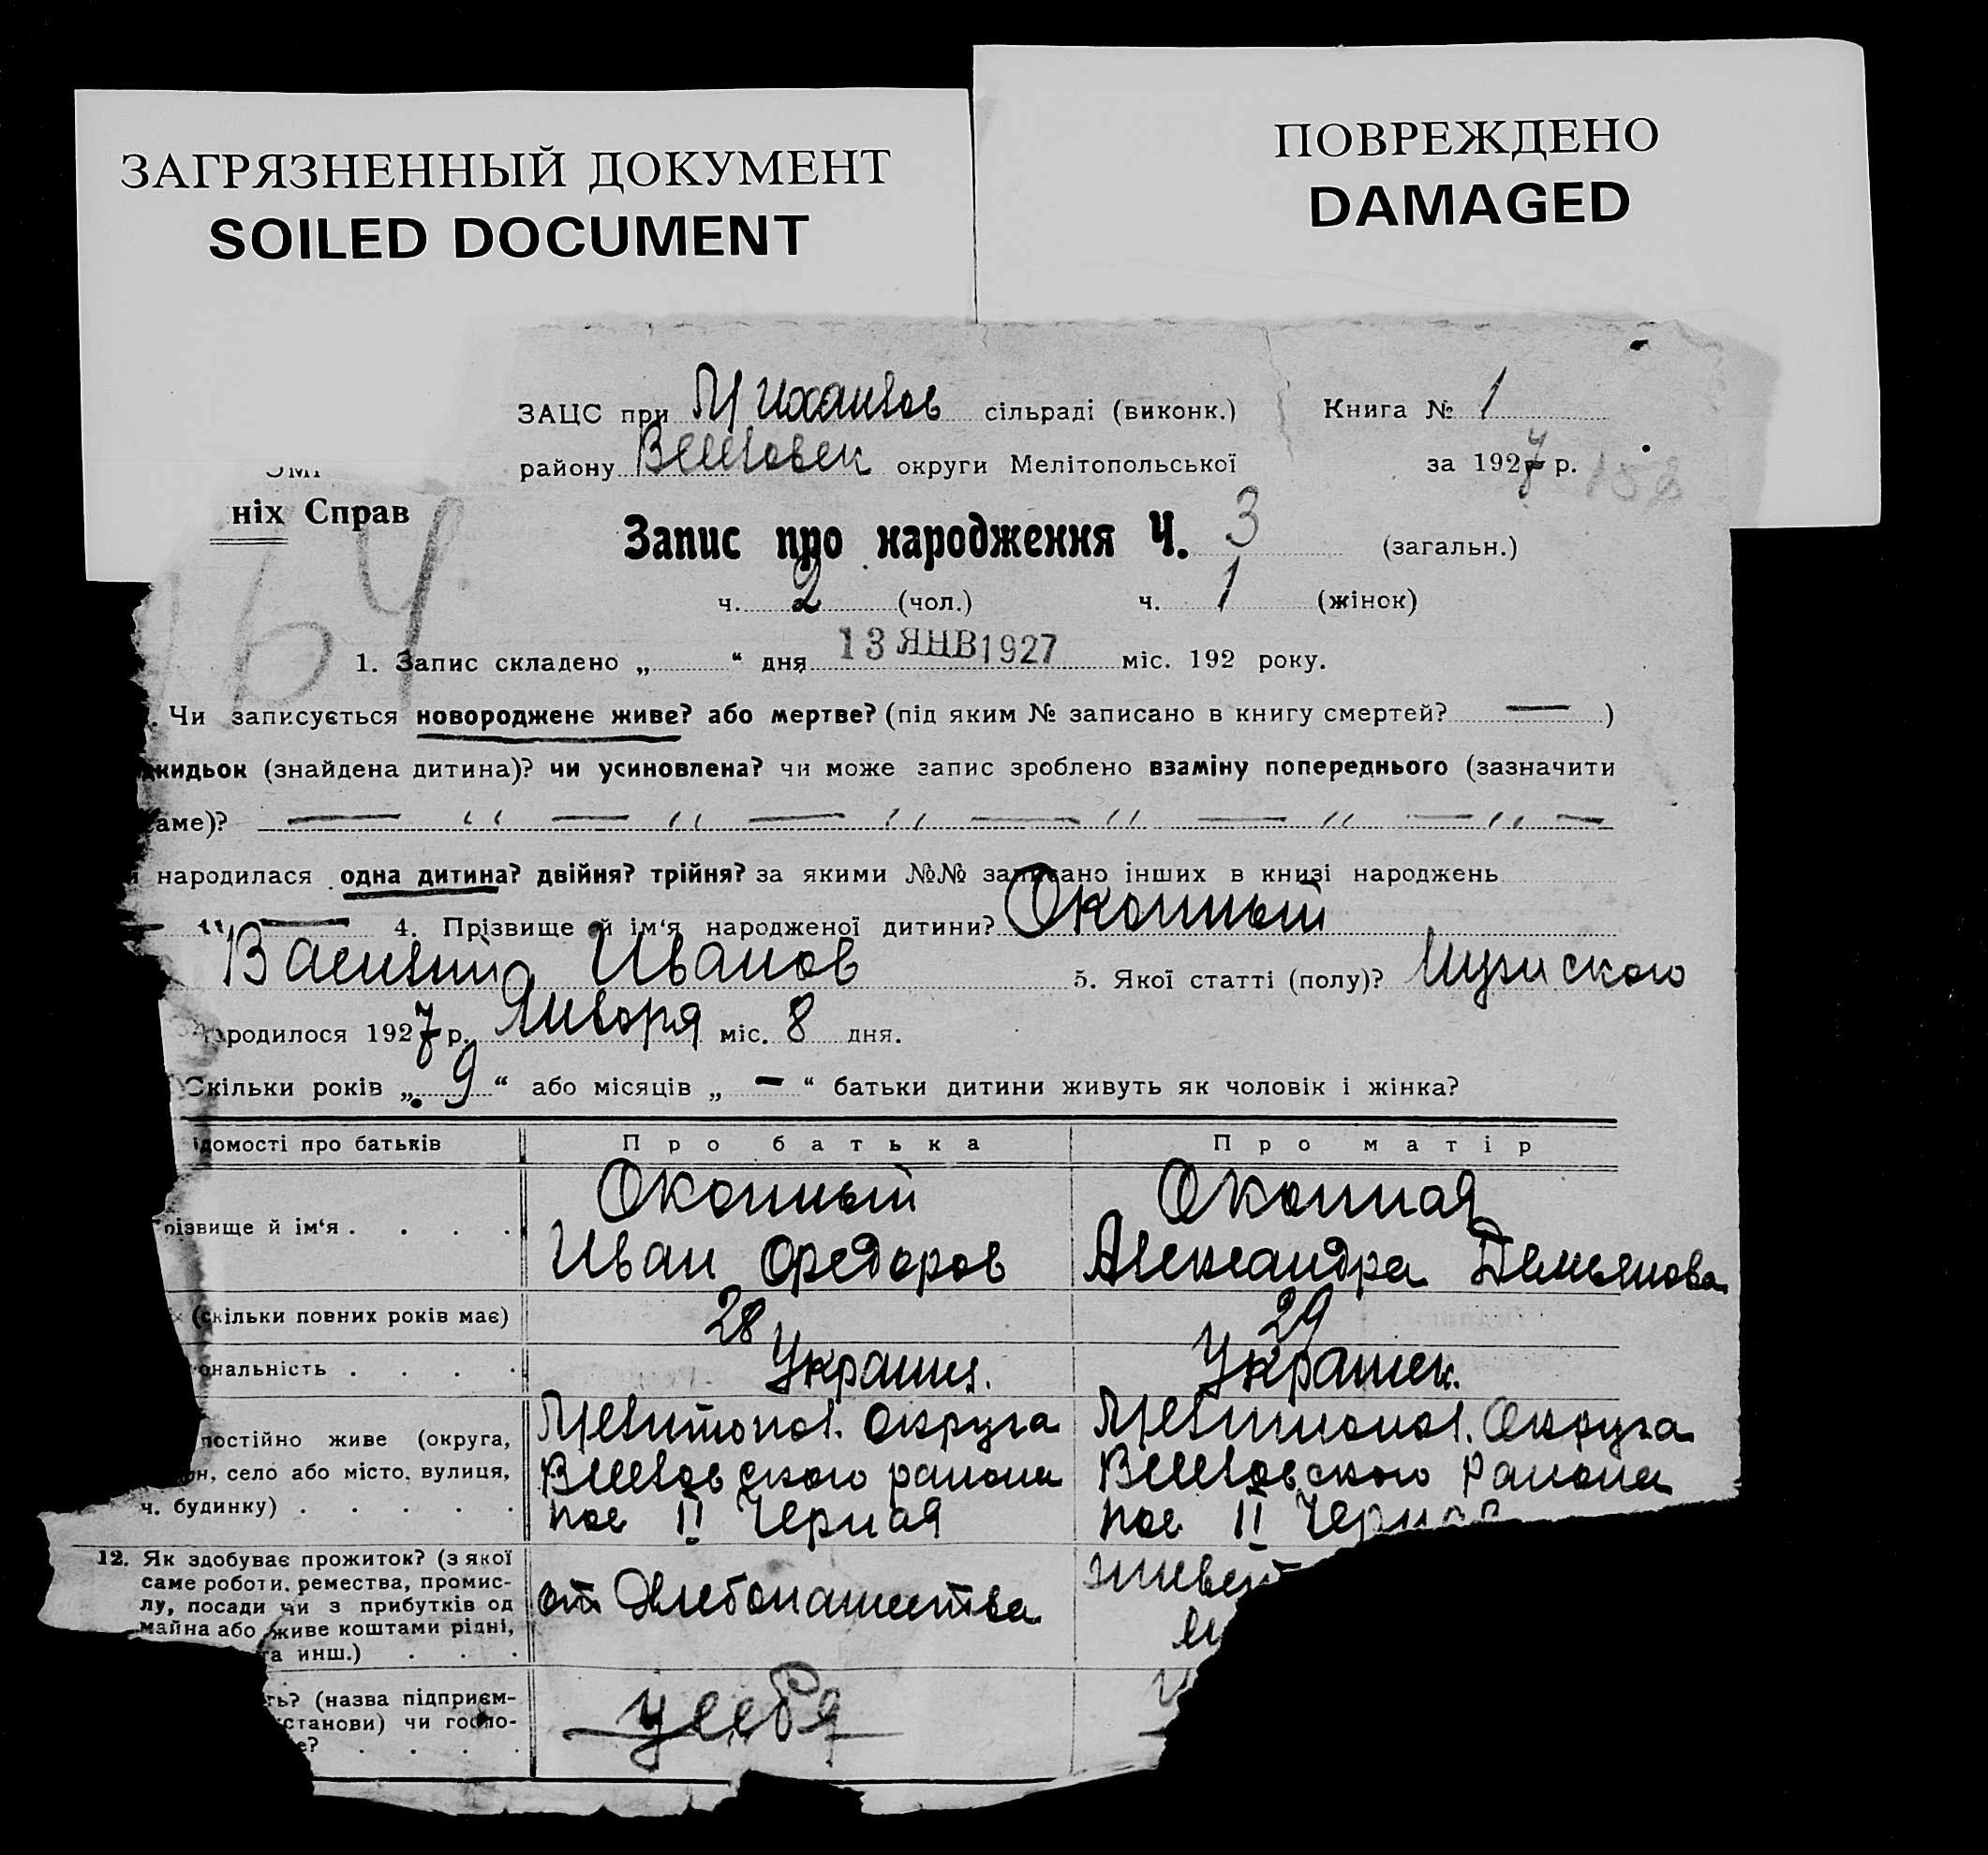 ЗАГРЯЗНЕННЫЙ ДОКУМЕНТ
SOILED DOCUMENT
ПОВРЕЖДЕНО
DAMAGED
ЗАЦС при Михайлов сільраді (виконк.) Книга № 1
району Веселовск округи Мелітопольської за 1927 р.
ніх Справ
Запис про народження Ч. 3 (загальн.)
ч. 2 (чол.) ч. 1 (жінок)
64
1. Запис складено „ “ дня 13 ЯНВ 1927 міс. 192 року.
. Чи записується новороджене живе? або мертве? (під яким № записано в книгу смертей? — )
кидьок (знайдена дитина)? чи усиновлена? чи може запис зроблено взаміну попереднього (зазначити
аме)? — " — " — " — " — " — " —
народилася одна дитина? двійня? трійня? за якими №№ записано інших в книзі народжень
— " — 4. Прізвище й ім‘я народженої дитини? Окопный
Василий Иванов 5. Якої статті (полу)? Мужского
родилося 1927 р. Января міс. 8 дня.
Скільки років „ 9 “ або місяців „ — “ батьки дитини живуть як чоловік і жінка?
ідомості про батьків Про батька Про матір
різвище й ім‘я . . . . Окопный Окопная
Иван Федоров Александра Демьянова
(скільки повних років має) 28 29
ональність . . . . Украин. Украинк.
постійно живе (округа, Мелитопол. округа Мелитопол. Округа
н, село або місто, вулиця, Веселовского района Веселовского района
ч. будинку) . . . . . пос II Черная пос II Черная
12. Як здобуває прожиток? (з якої
саме роботи, ремества, промис-
лу, посади чи з прибутків од
майна або живе коштами рідні,
та инш.) . . . от Хлебопашества
ть? (назва підприєм-
станови) чи госпо-
е? . . . . у себя